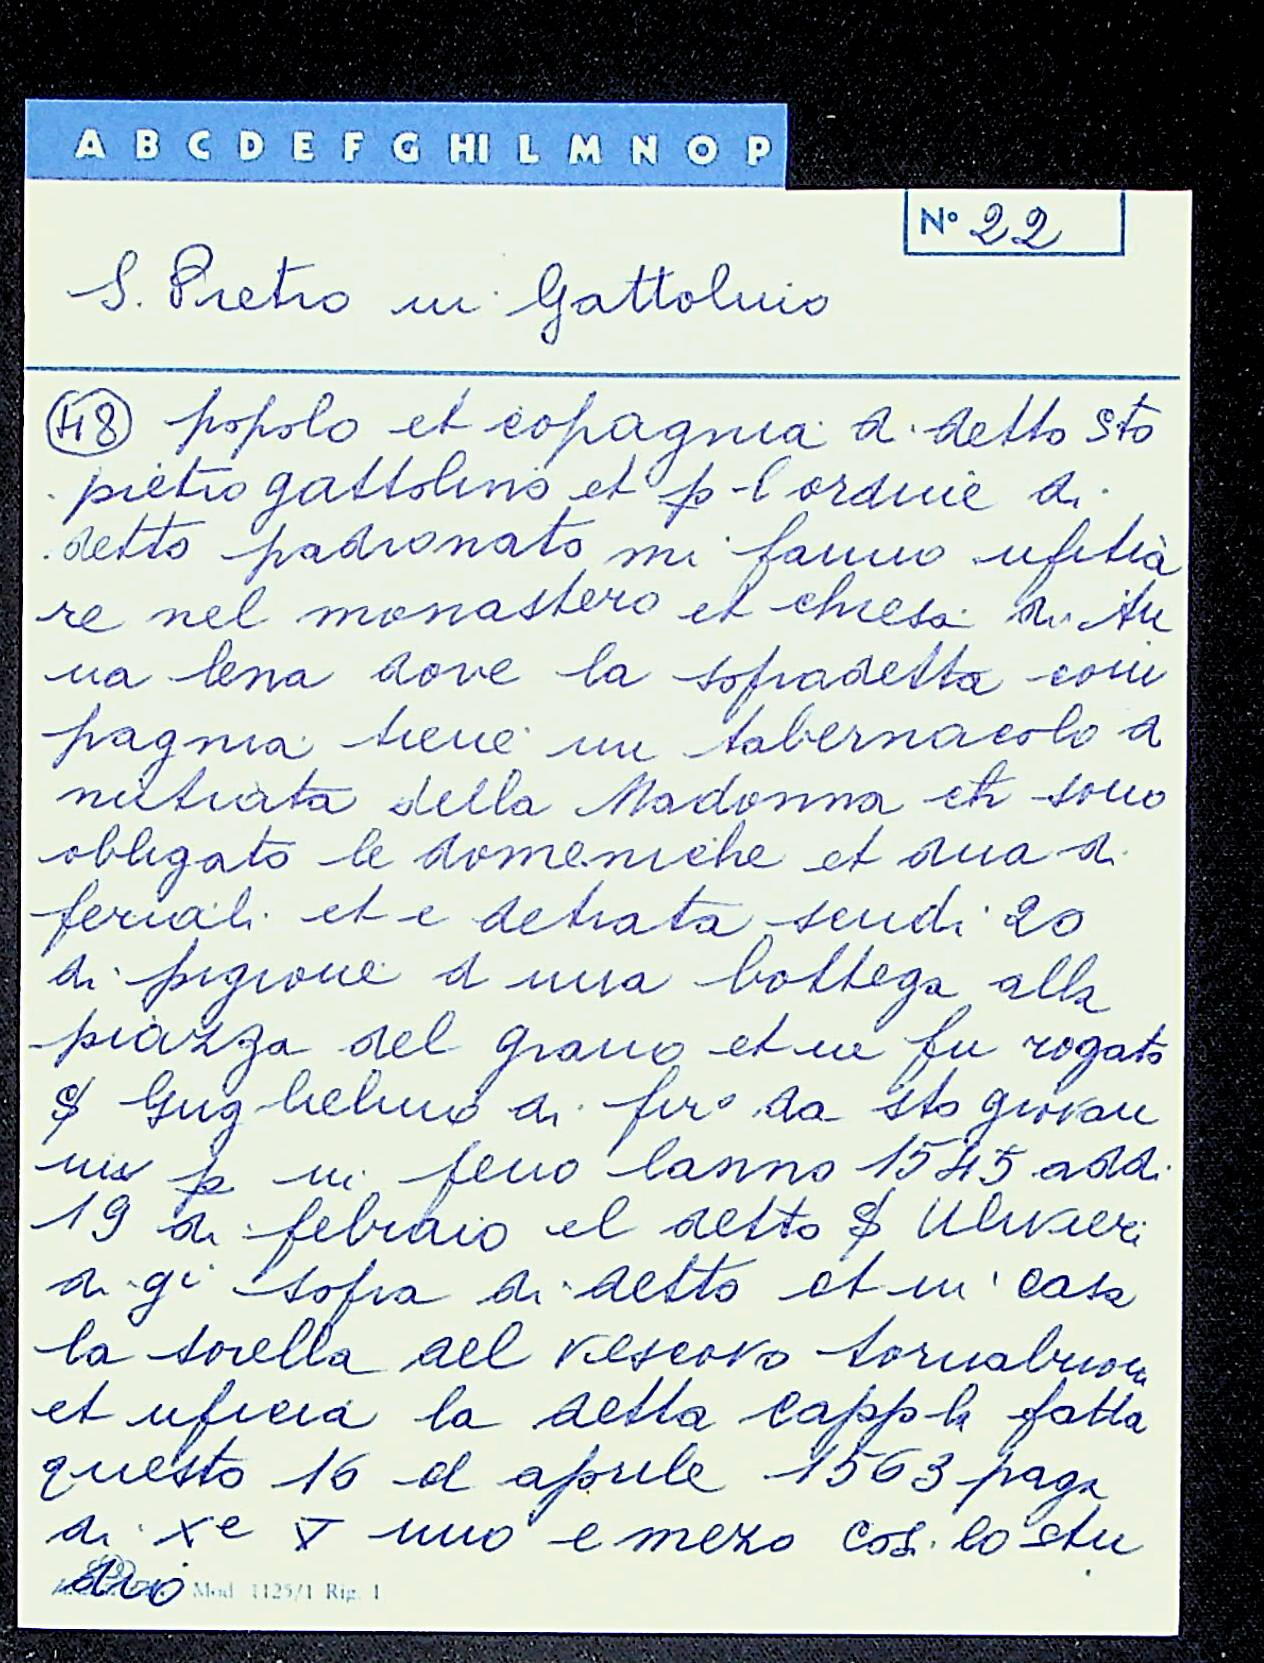 A B C D E F G HI L M N O P
N° 22
S. Pietro in Gattolino
48 popolo et copagnia d. detto Sto
pietro gattolino et p l ordine di
detto padronato mi fanno ufitia
re nel monastero et chiesa di An
na lena dove la sopradetta com
pagnia tiene un tabernacolo d
nitrata della Madonna et sono
obligato le domeniche et dua di
feriali et e detrata scudi 20
di pigione d una bottega alla
piazza del grano et ne fu rogato
S Guglielmo di fir° da sto giovan
ni p in feno lanno 1545 addi
19 di febraio el detto S Ulivieri
di gi sopra di detto et in casa
la sorella del vescovo tornabuoni
et uficia la detta capp la fatta
questo 16 d aprile 1563 paga
di Xe V uno e mezo cos. lo stu
dio
Mod 1125/1 Rig. 1